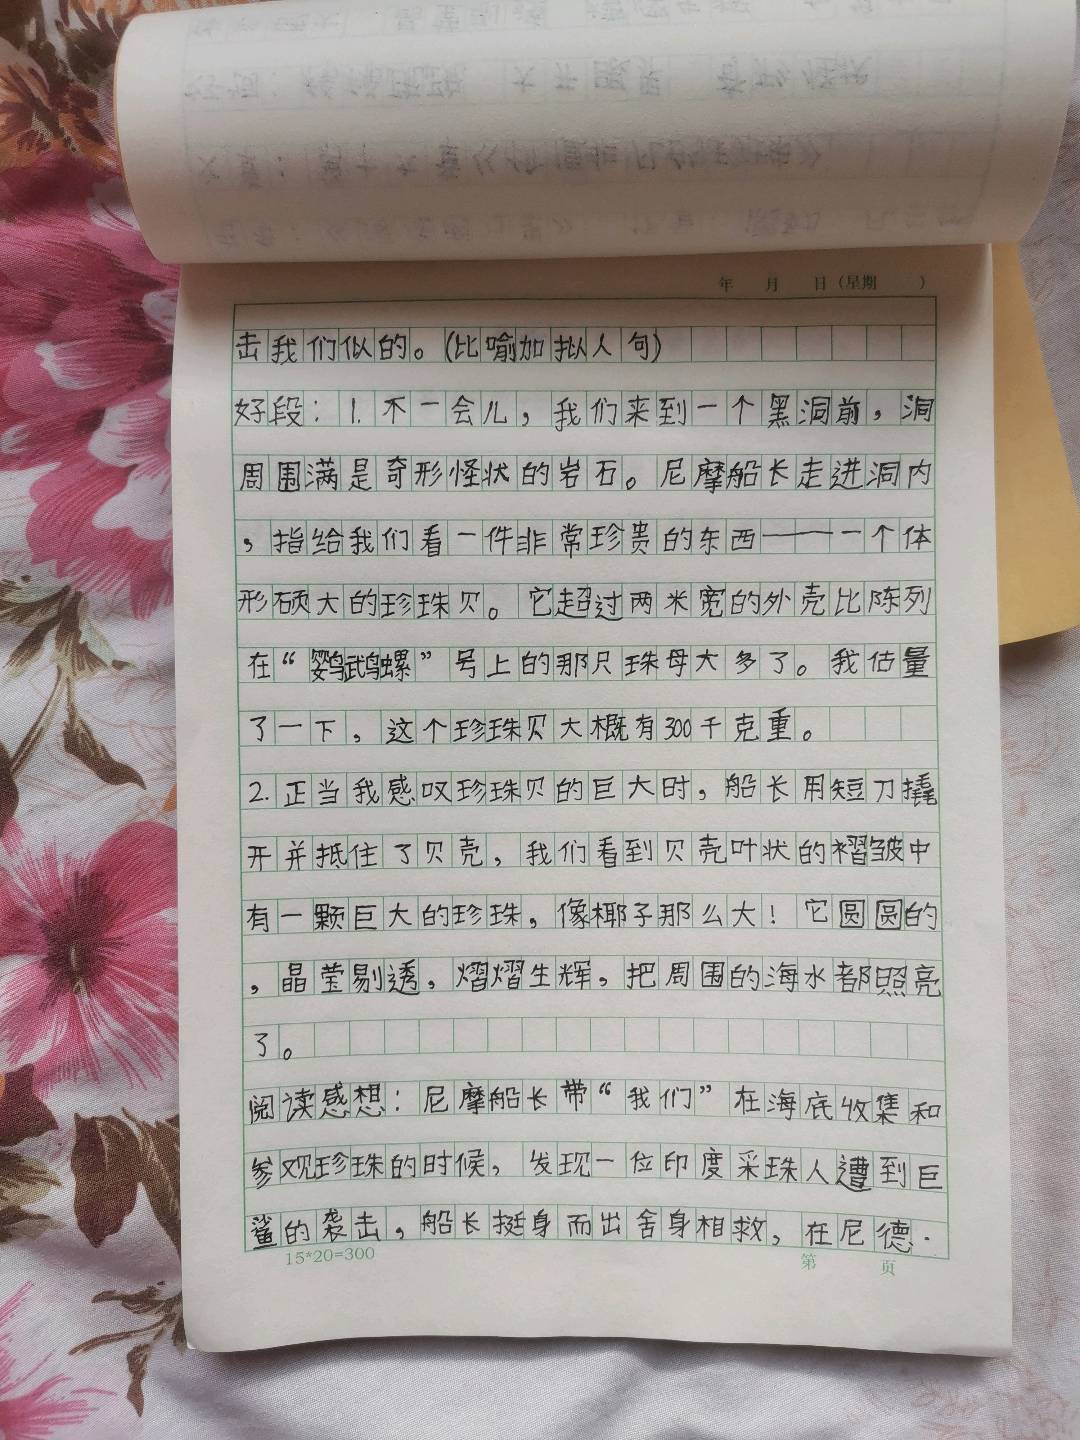 年 月 日（星期 ）
击我们似的。(比喻加拟人句)
好段：1.不一会儿，我们来到一个黑洞前，洞
周围满是奇形怪状的岩石。尼摩船长走进洞内
，指给我们看一件非常珍贵的东西——一个体
形硕大的珍珠贝。它超过两米宽的外壳比陈列
在“鹦鹉螺”号上的那只珠母大多了。我估量
了一下，这个珍珠贝大概有300千克重。
2.正当我感叹珍珠贝的巨大时，船长用短刀撬
开并抵住了贝壳，我们看到贝壳叶状的褶皱中
有一颗巨大的珍珠，像椰子那么大！它圆圆的
，晶莹剔透，熠熠生辉，把周围的海水都照亮
了。
阅读感想：尼摩船长带“我们”在海底收集和
参观珍珠的时候，发现一位印度采珠人遭到巨
鲨的袭击，船长挺身而出舍身相救，在尼德·
15*20=300
第 页